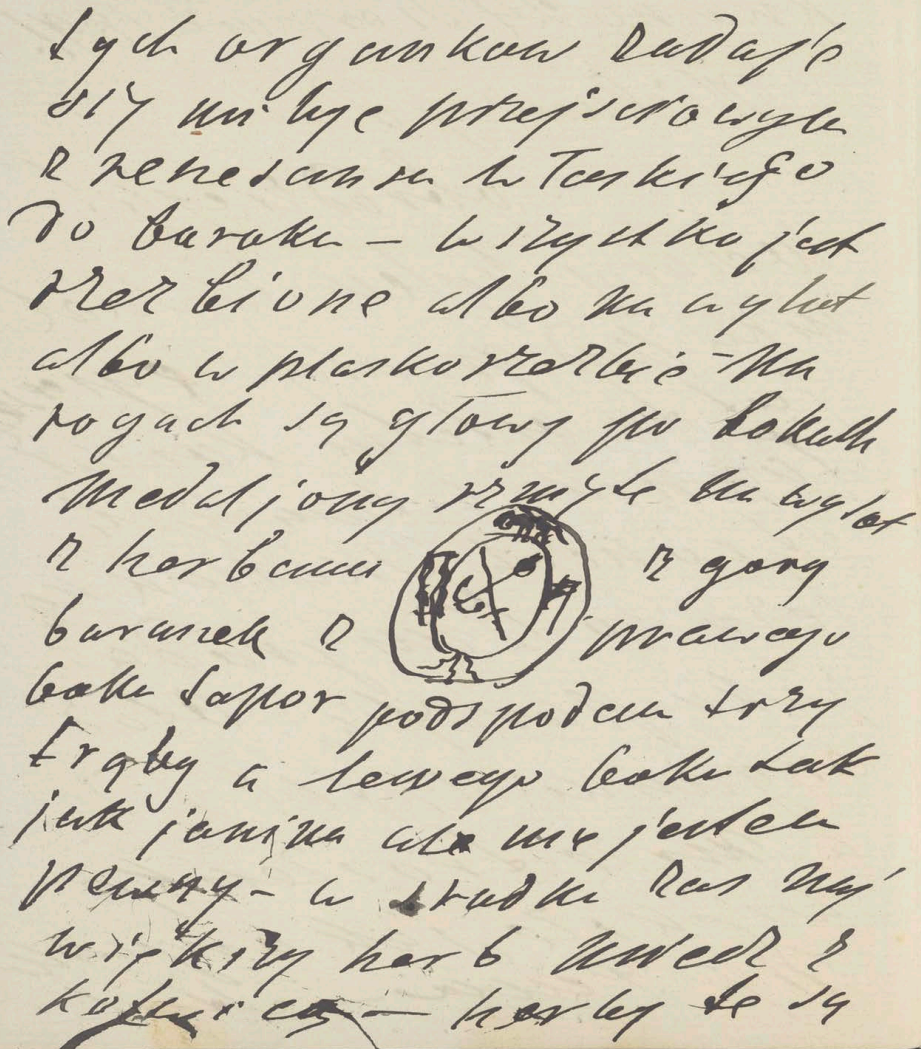 tych organkow zadaje
się mi być przejsciowym
z renesansu włoskiego
do baroku – wszystko jest
rzezbione albo na wylot
albo w plaskorzezbie – na
rogach są głowy po bokach
medaljony rznięte na wylot
z herbami z gory
baranek z prawego
boku topor podspodem trzy
trąby a lewego boku tak
jak janina ale nie jestem
pewny – w srodku zas naj
większy herb
– herby te są